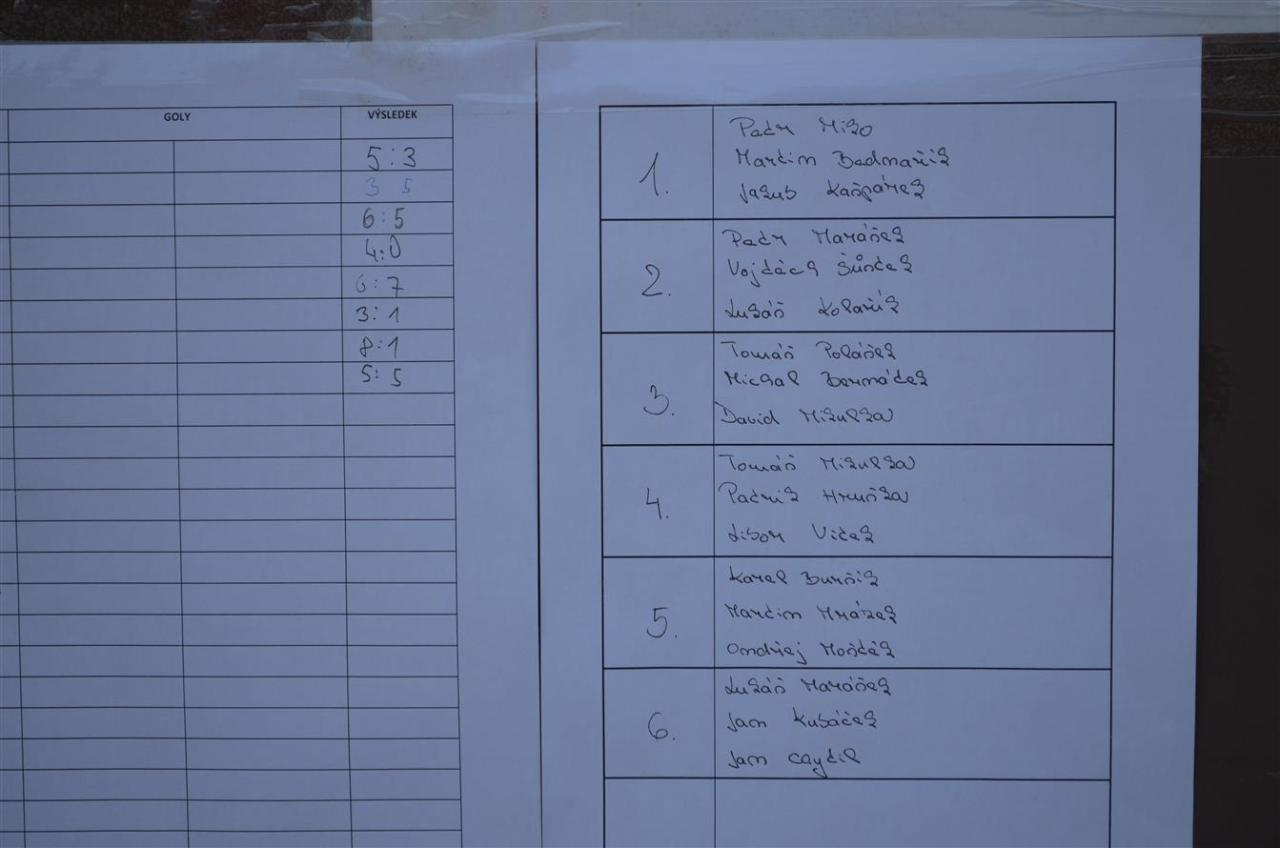 GOLY VÝSLEDEK
5:3
3 5
6:5
4:0
6:7
3:1
8:1
5:5
1.
Petr Mizo
Martin Bednařík
Jakub Kašpárek
2.
Petr Maráček
Vojtěch
Lukáš Kolařík
3.
Tomáš Poláček
Michal
David Mikulka
4.
Tomáš Mikulka
Patrik Hruška
Libor Víček
5.
Karel Buršík
Martin Mrázek
Ondřej Mošťák
6.
Lukáš Maráček
Jan Kubáček
Jan